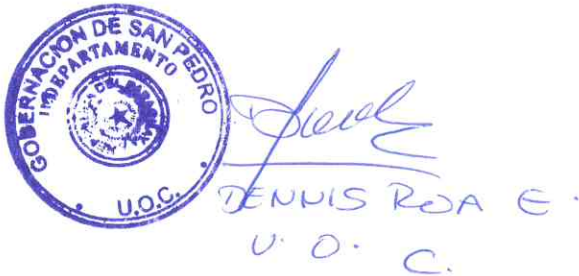 GOBERNACION DE SAN PEDRO
II DEPARTAMENTO
U.O.C.
DENNIS ROA E.
U. O. C.